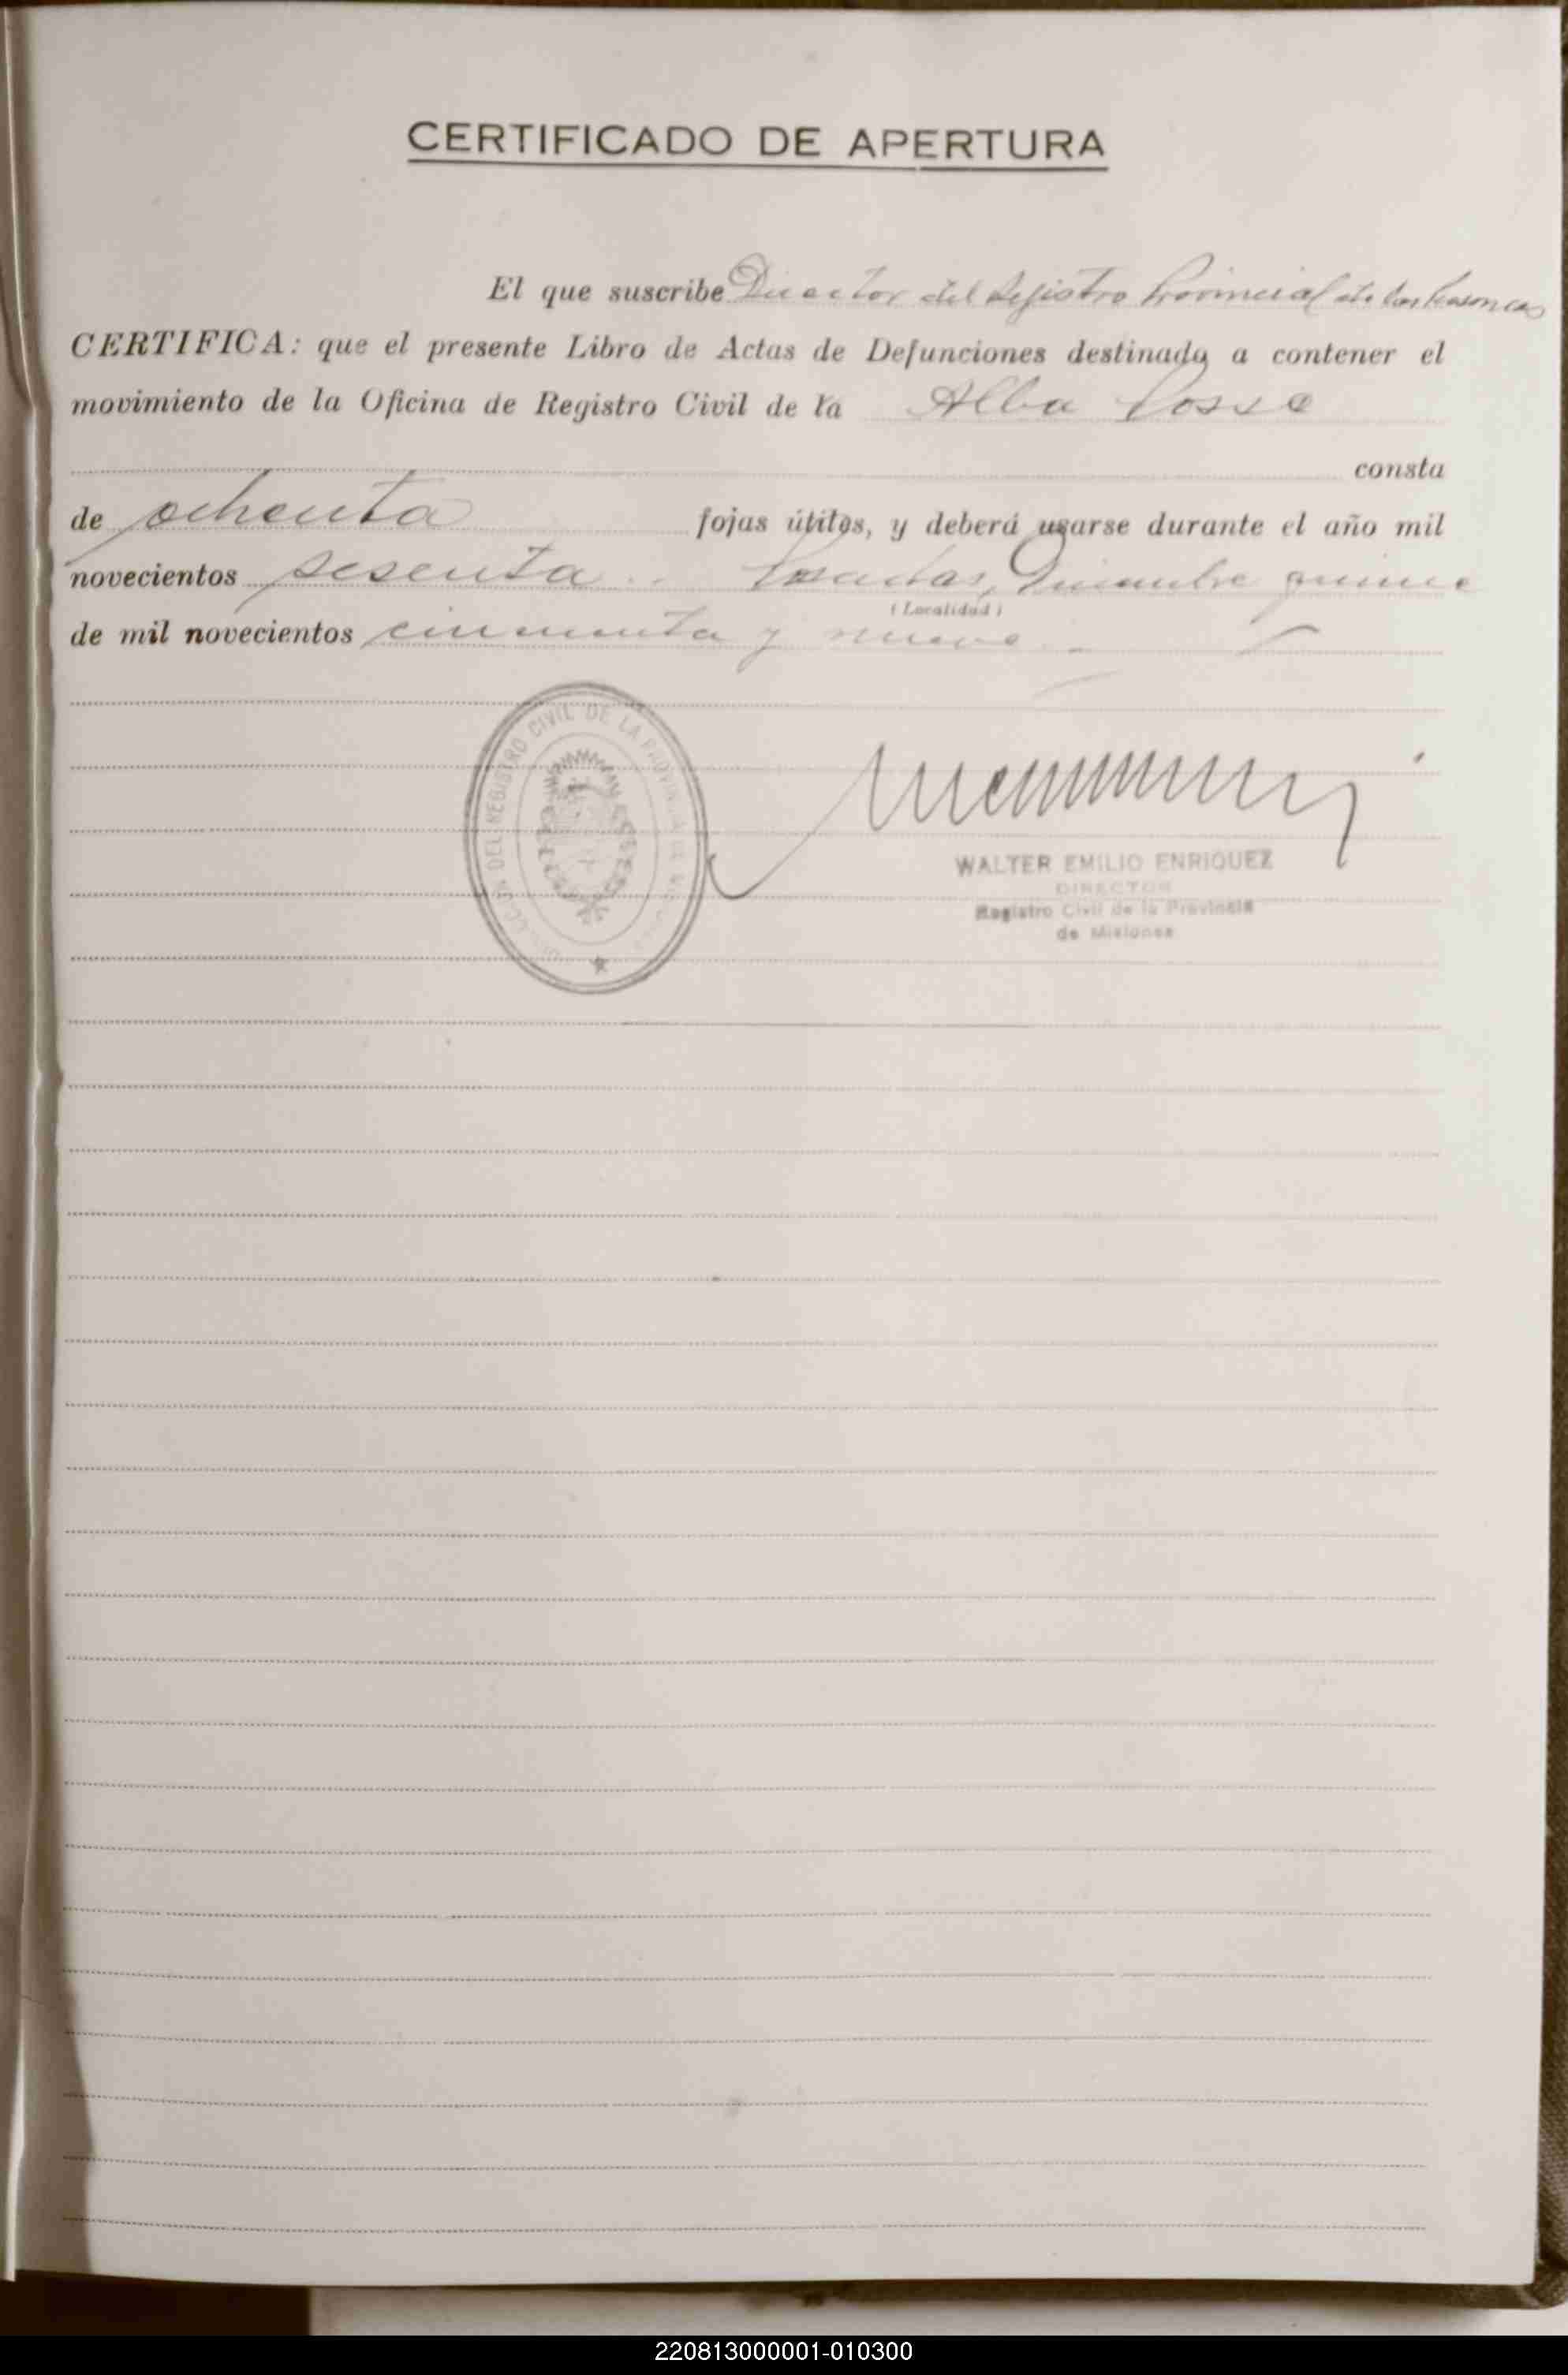 CERTIFICADO DE APERTURA
El que suscribe Director del Registro Provincial de las Personas
CERTIFICA: que el presente Libro de Actas de Defunciones destinado a contener el
movimiento de la Oficina de Registro Civil de la Alba Posse
consta
de ochenta fojas útiles, y deberá usarse durante el año mil
novecientos sesenta.. Posadas, Diciembre quince
(Localidad)
de mil novecientos cincuenta y nueve.-
DIRECCION DEL REGISTRO CIVIL DE LA PROVINCIA DE MISIONES
WALTER EMILIO ENRIQUEZ
DIRECTOR
Registro Civil de la Provincia
de Misiones
220813000001-010300